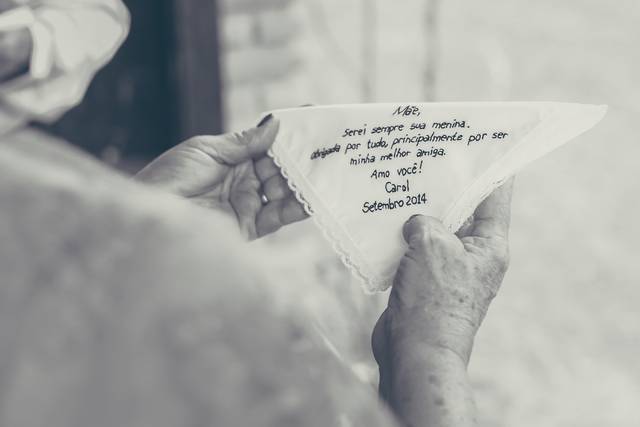 Mãe,
Serei sempre sua menina.
obrigada por tudo, principalmente por ser
minha melhor amiga.
Amo você!
Carol
Setembro 2014